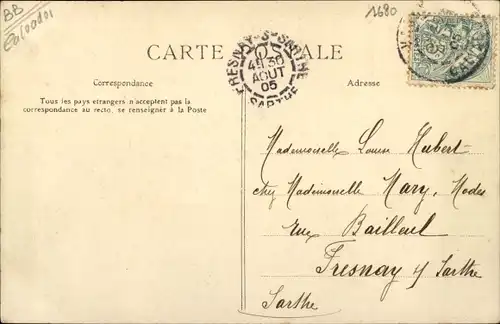 BB
Calvados
1680
CARTE POSTALE
FRESNAY-S-SARTHE
4H30
AOUT
05
SARTHE
Correspondance
Adresse
Tous les pays etrangers n'acceptent pas la
correspondance au recto, se renseigner à la Poste
Mademoiselle Louise Hubert-
chez Mademoiselle Mary, Modes
Rue Bailleul
Fresnay s/ Sarthe
Sarthe